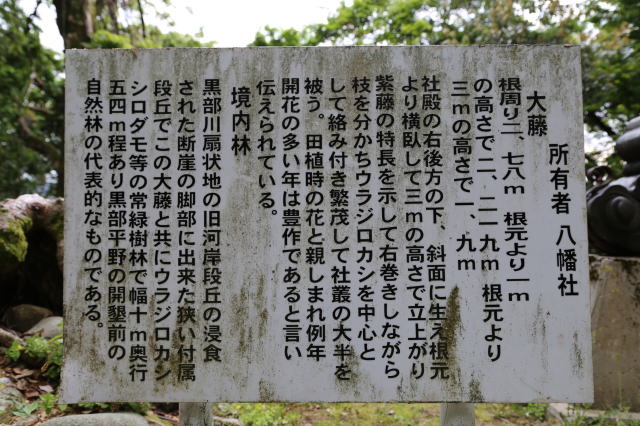 大藤　所有者 八幡社
根周り二、七八m 根元より一m
の高さで二、二一九m 根元より
三mの高さで一、九m
社殿の右後方の下、斜面に生え根元
より横臥して三mの高さで立上がり
紫藤の特長を示して右巻きしながら
枝を分かちウラジロカシを中心と
して絡み付き繁茂して社叢の大半を
被う。田植時の花と親しまれ例年
開花の多い年は豊作であると言い
伝えられている。
境内林
黒部川扇状地の旧河岸段丘の浸食
された断崖の脚部に出来た狭い付属
段丘でこの大藤と共にウラジロカシ
シロダモ等の常緑樹林で幅十m奥行
五四m程あり黒部平野の開墾前の
自然林の代表的なものである。